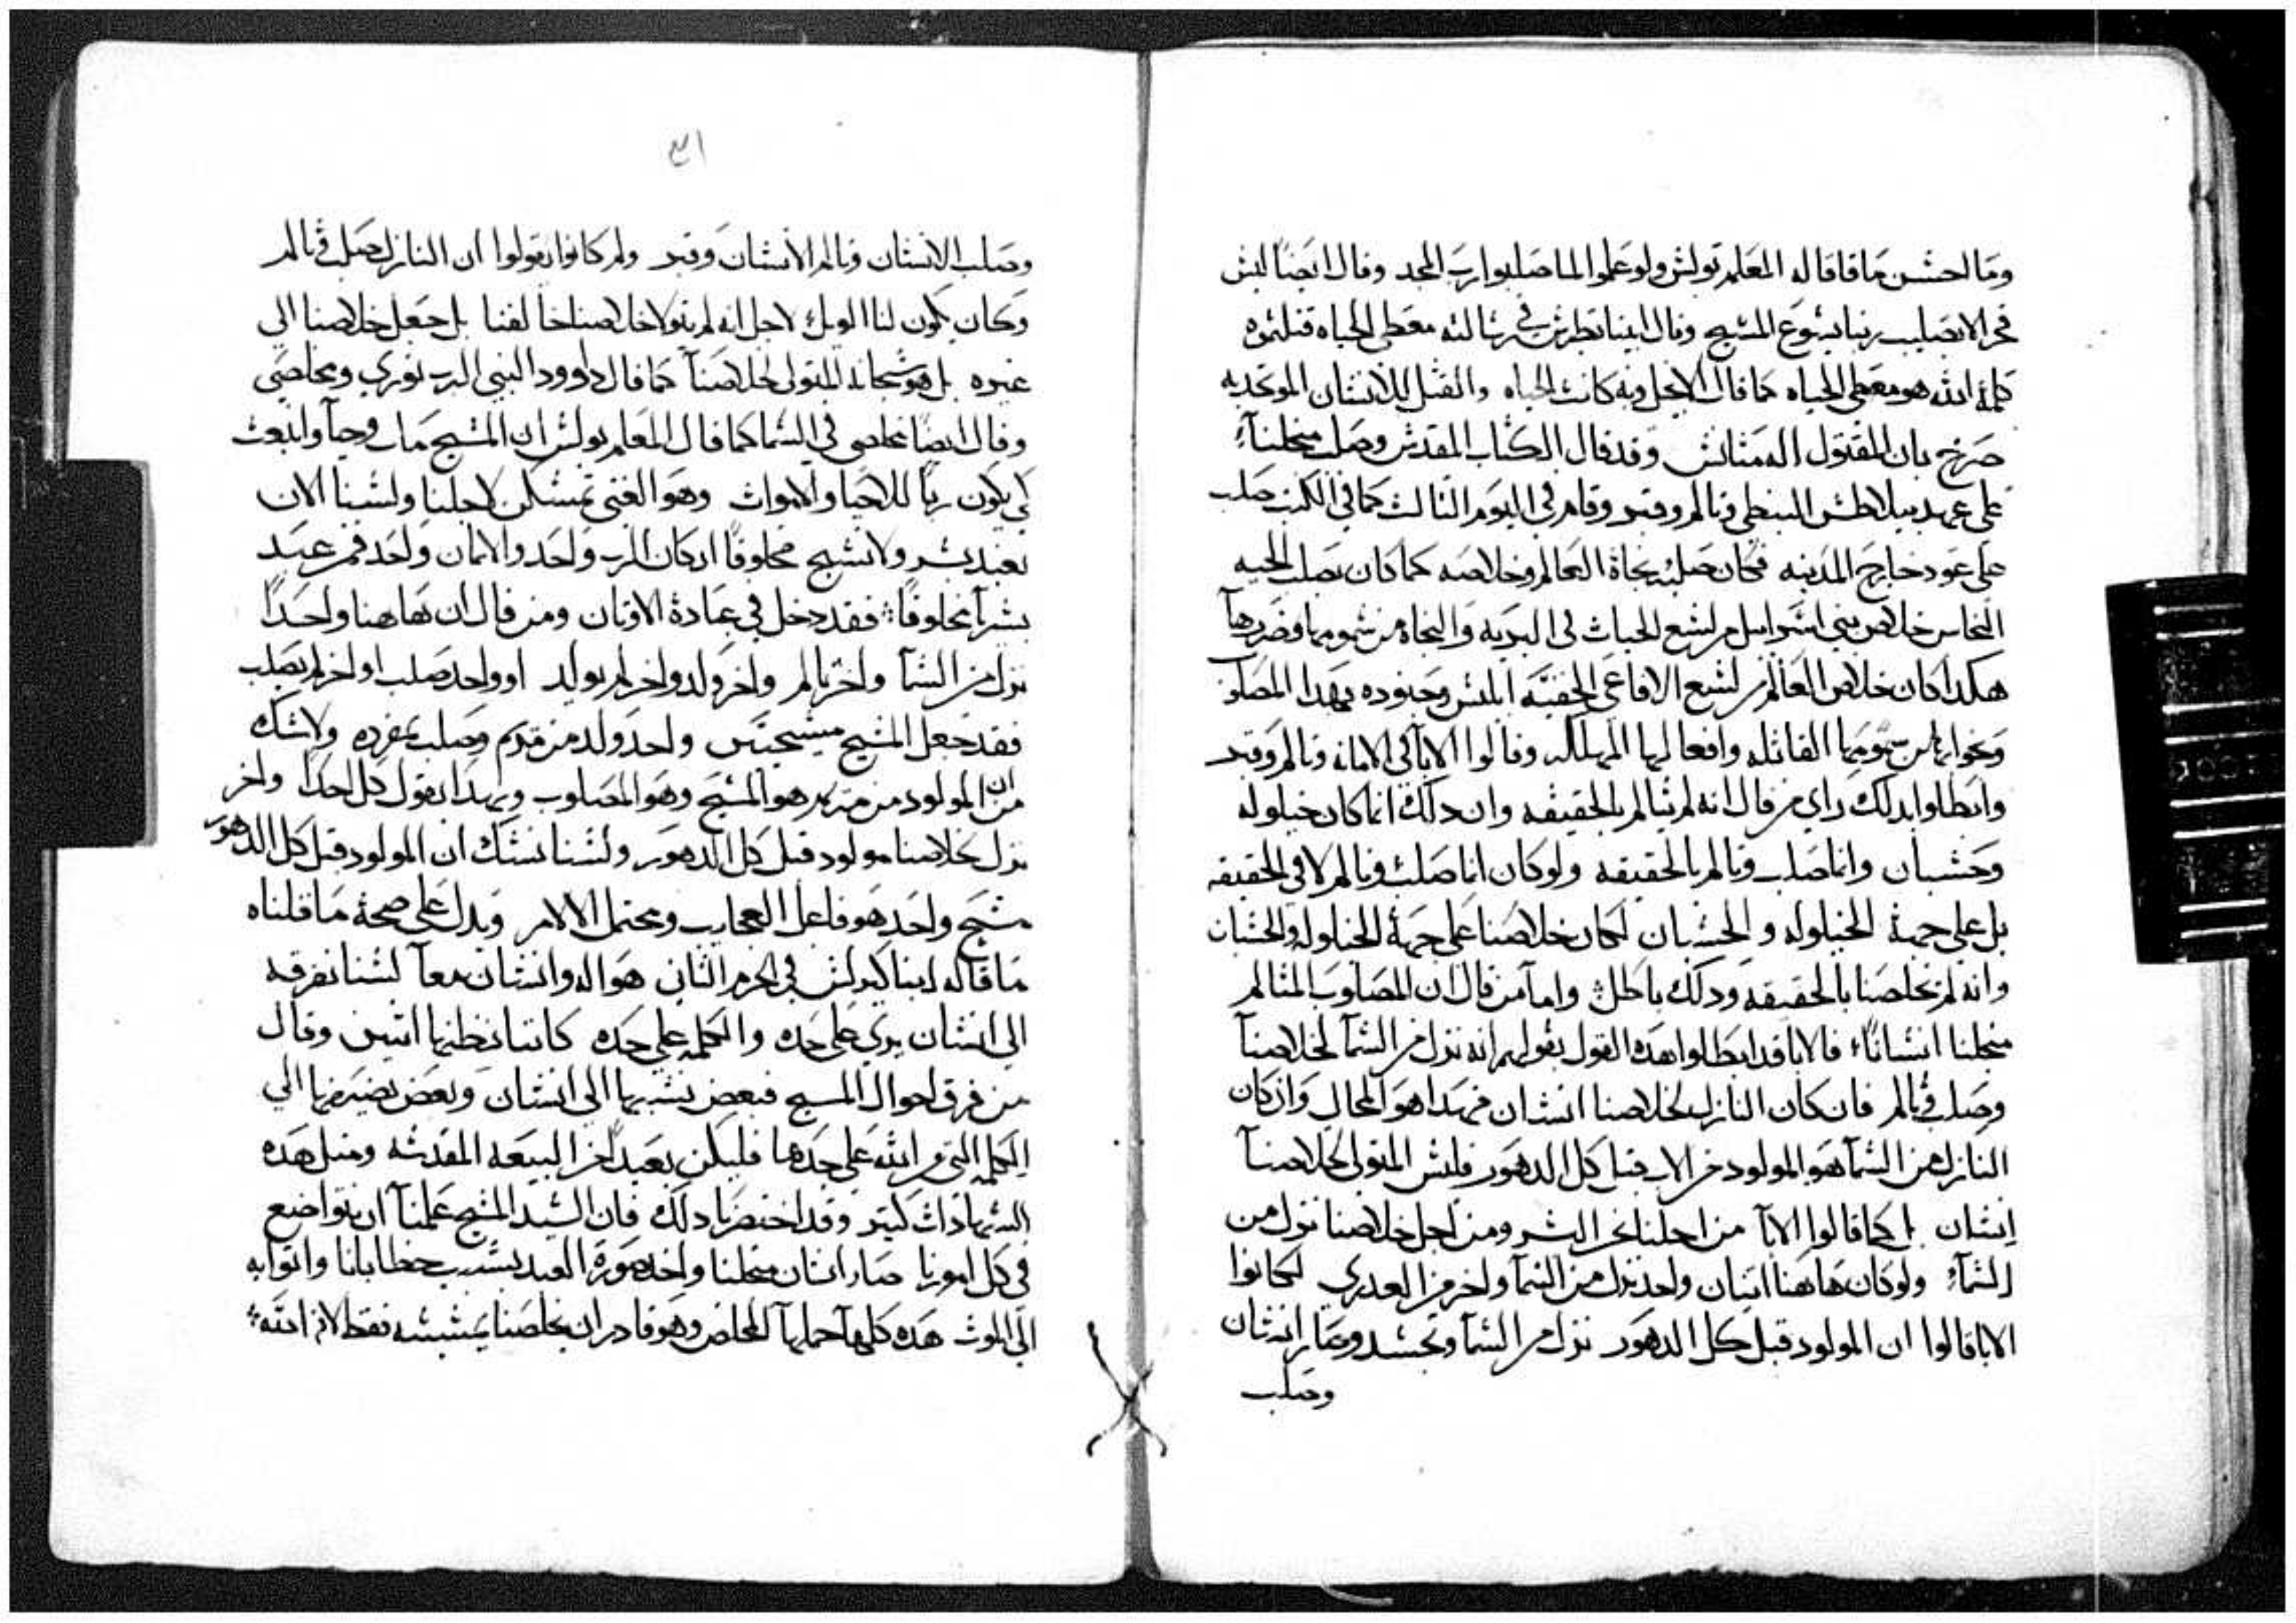 وما احسن ما قاله المعلم بولش ولو علموا لما صلبوا رب المجد وقال ايضا ليش
فخر الا بصليب ربنا يشوع المشيح وقال ابينا بطرش في رشالته معطي الحياه قتلتموه
كلمة الله هو معطي الحياه كما قال الانجيل وبه كانت الحياه والقتل للانشان الموحد به
صرخ بان المقتول اله متانش وقد قال الكتاب المقدش وصلب من اجلنا
على عهد بيلاطش البنطي وتالم وقبر وقام في اليوم الثالث كما في الكتب صلب
على عود خارج المدينه فكان صلبه نجاة العالم وخلاصه كما كان بصلب الحيه
النحاس خلاص بني اشراييل من لشع الحيات في البريه والنجاه من شمومها وضررها
هكدا كان خلاص العالم من لشع الافاعي الخفيه ابليش وجنوده بهدا المصلوب
ونجوا بها من شمومها القاتله وافعالها المهلكه وقالوا الابا في الامانه وتالم وقبر
وابطلوا بدلك راي من قال انه لم يتالم بالحقيقه وان دلك انما كان خيلوله
وحشبان وانما صلب وتالم بالحقيقه ولو كان انما صلب وتالم لا في الحقيقه
بل على جهة الخيلوله والحشبان لكان خلاصنا على جهة الخيلوله والحشبان
وانه لم يخلصنا بالحقيقه ودلك باطل واما من قال ان المصلوب المتالم
من اجلنا انشانا فالابا قد ابطلوا هده القول بقولهم انه نزل من الشما لخلاصنا
وصلب وتالم فان كان النازل لخلاصنا انشان فهدا هو المحال وان كان
النازل من الشما هو المولود من الاب قبل كل الدهور فليش المتولي لخلاصنا
انشان بل كما قالوا الابا من اجلنا نحن البشر ومن اجل خلاصنا نزل من
الشما ولو كان هاهنا اتنان واحد نزل من الشما واخر من العدرى لكانوا
الابا قالوا ان المولود قبل كل الدهور نزل من الشما وتجشد وصار انشان
وصلب
٣١
وصلب الانشان وتالم الانشان وقبر ولم كانوا يقولوا ان النازل صلب وتالم
وكان يكون لنا الويل لاجل انه لم يتولا خلاصنا خالقنا بل جعل خلاصنا الي
غيره بل هو شبحانه المتولي لخلاصنا كما قال داوود النبي الرب نوري ومخلصي
وقال ايضا مخلصي في الشما كما قال المعلم بولش ان المشيح مات وحيا وانبعث
كي يكون ربا للاحيا والاموات وهو الغني تمشكن لاجلنا ولشنا الان
نعبد بشر ولا نشبح مخلوقا اد كان الرب واحد والايمان واحد فمن عبد
بشرا مخلوقا فقد دخل في عبادة الاوتان ومن قال ان هاهنا واحدا
نزل من الشما واخر تالم واخر ولد واخر لم يولد او واحد صلب او اخر لم يصلب
فقد جعل المشيح مشيحين واحد ولد من مريم وصلب بمفرده ولا شك
ان المولود من مريم هو المشيح وهو المصلوب وبهدا يقول كل احدا واخر
نزل لخلاصنا مولود قبل كل الدهور ولشنا نشك ان المولود قبل كل الدهور
مشيح واحد هو فاعل العجايب ومحتمل الالام ويدل على صحة ما قلناه
ما قاله ابينا كيرلش في الحرم الثاني هو اله وانشان معا لشنا نفرقه
الى انشان يرى على حده والكلمه على حده كاننا نظنها اتنين وقال
من فرق احوال المسيح فبعض ينشبها الى انشان وبعض يضيفها الي
الكلمه التي من الله على حدها فليكن بعيدا من البيعه المقدشه ومثل هده
الشهادات كتير وقد اختصرنا دلك فان الشيد المشيح علمنا ان نتواضع
في كل امورنا صار انشان من اجلنا واخد صورة العبد بشبب خطايانا واتوا به
الى الموت هده كلها احتملها المخلص وهو قادر ان يخلصنا بمشيئته فقط لانه الله